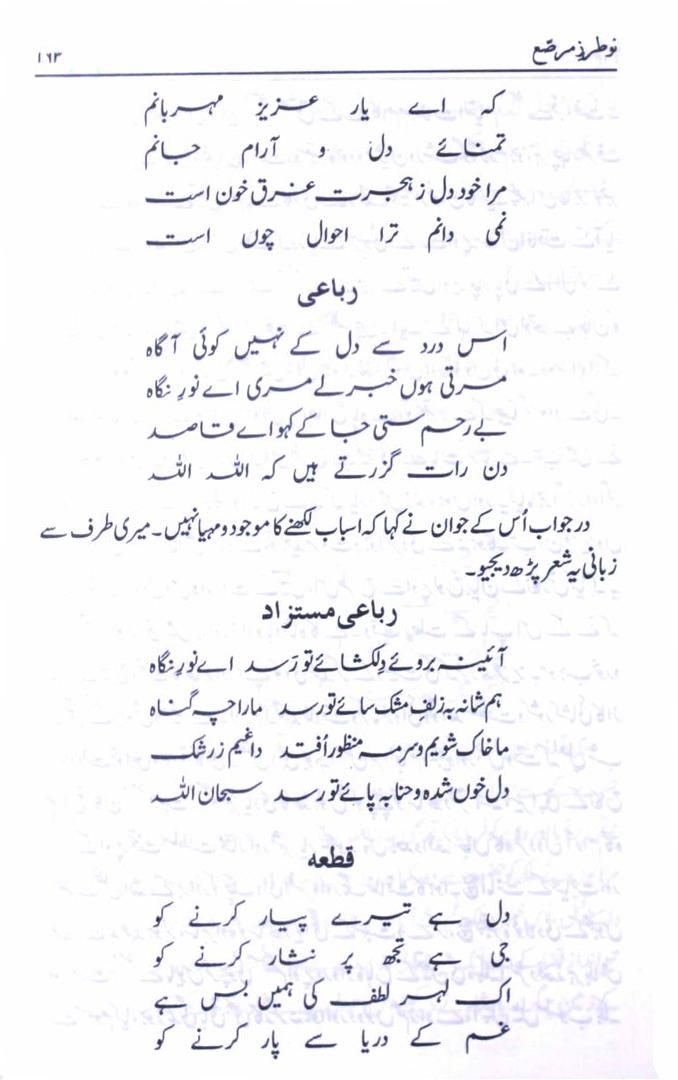 نو طرزِ مرصّع
۱۶۳
کہ اے یار عزیز مہربانم
تمنائے دل و آرام جانم
مرا خود دل ز ہجرت غرق خون است
نمی دانم ترا احوال چوں است
رباعی
اس درد سے دل کے نہیں کوئی آگاہ
مرتی ہوں خبر لے مری اے نورِ نگاہ
بے رحم ستی جا کے کہو اے قاصد
دن رات گزرتے ہیں کہ اللہ اللہ
در جواب اُس کے جوان نے کہا کہ اسباب لکھنے کا موجود و مہیا نہیں۔ میری طرف سے
زبانی یہ شعر پڑھ دیجیو۔
رباعی مستزاد
آئینہ بروئے دِلکشائے تو رَسد اے نورِ نگاہ
ہم شانہ بہ زلفِ مشک سائے تو رسد مارا چہ گناہ
ما خاک شویم و سرمہ منظور اُفتد داغیم ز رشک
دل خوں شدہ و حنا بہ پائے تو رسد سبحان اللہ
قطعہ
دل ہے تیرے پیار کرنے کو
جی ہے تجھ پر نثار کرنے کو
اک لہر لطف کی ہمیں بس ہے
غم کے دریا سے پار کرنے کو